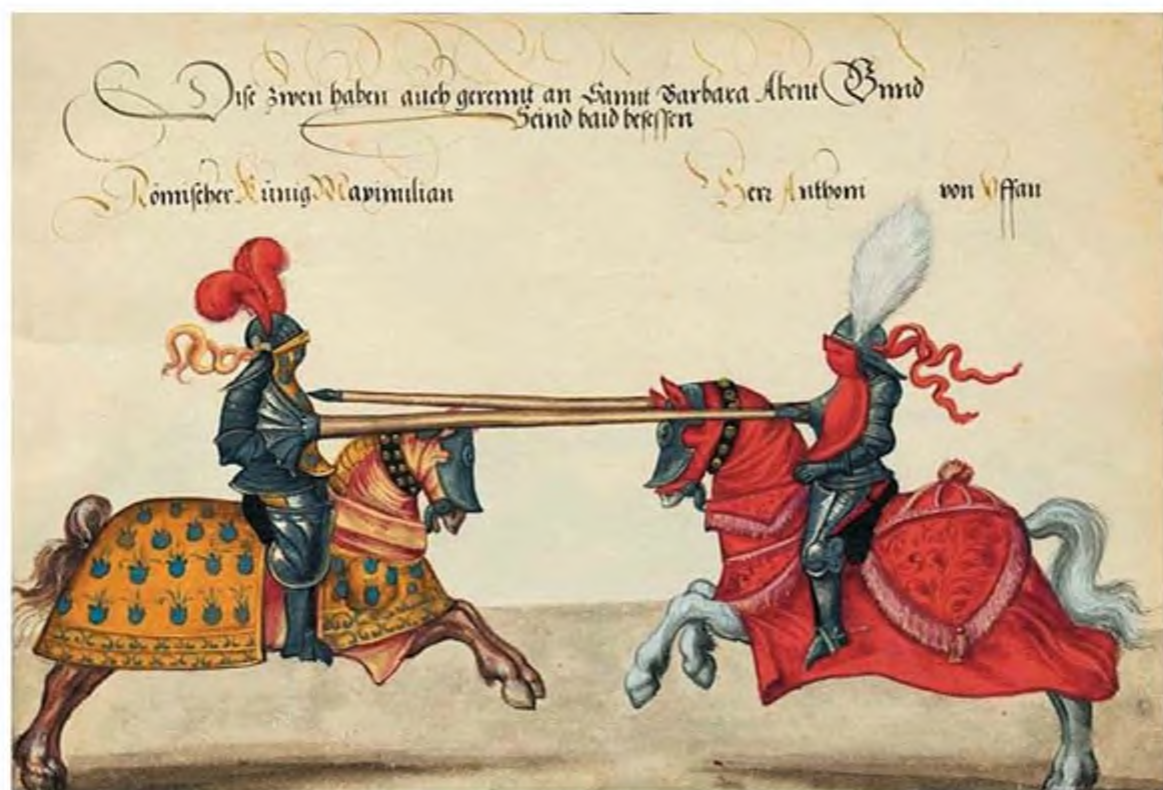 Dise zwen haben auch gerennt an Sannt Barbara Abent Vnnd
Seind baid besessen
Römischer Künig Maximilian
Herr Anthoni von Yffan